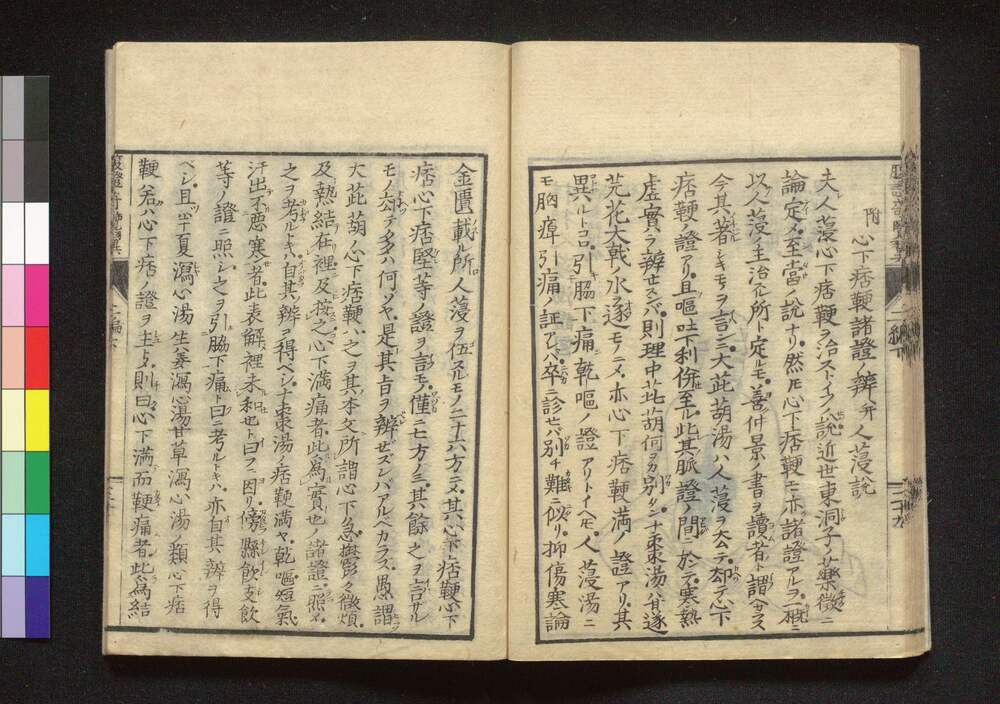 附 心下痞鞕諸證ノ辨幷人葠説
夫人葠心下痞鞕ヲ治ストイフノ説近世東洞子ノ藥徴ニ
論定メ至當ノ説ナリ然𪜈心下痞鞕モ亦諸證アルヲ一概ニ
以人葠ノ主治スル所ト定ルモ善仲景ノ書ヲ讀者ト謂ヘカラス
今其著シキモノヲ言ンニ大茈胡湯ハ人葠ヲ去テ却テ心下
痞鞕ノ證アリ且嘔吐下利併至ル此其脈證ノ間ニ於テ寒熱
虛實ヲ辨セスンバ則理中茈胡何ヲカ別タン十棗湯ハ甘遂
芫花大戟ノ水ヲ逐モノニメ亦心下痞鞕滿ノ證アリ其
異ルトコロ引脇下痛乾嘔ノ證アリトイヘ𪜈人葠湯ニ
モ胸痺引痛ノ証アレバ卒ニ診セバ別チ難ニ似リ抑傷寒論
金匱載ル所人葠ヲ伍スルモノ二十六方ニメ其心下痞鞕心下
痞心下痞堅等ノ證ヲ言モノ僅ニ七方ノミ其餘之ヲ言ザル
モノ却テ多キハ何ゾヤ是其旨ヲ辨セズンバアルベカラス愚謂
大茈胡ノ心下痞鞕ハ之ヲ其本文所謂心下急鬱鬱微煩
及熱結在裡及按之心下滿痛者此爲實也ノ諸證ニ照メ
之ヲ考ルトキハ自其ノ辨ヲ得ベシ十棗湯ノ痞鞕滿ヤ乾嘔短氣
汗出不惡寒者此表解裡未和也ト曰フニ因リ傍懸飲支飲
等ノ證ニ照シ之ヲ引脇下痛ト曰ニ考ルトキハ亦自其辨ヲ得
ベシ且半夏瀉心湯生薑瀉心湯甘草瀉心湯ノ類心下痞
鞕若ハ心下痞ノ證ヲ主トメ則曰心下滿而鞕痛者此爲結